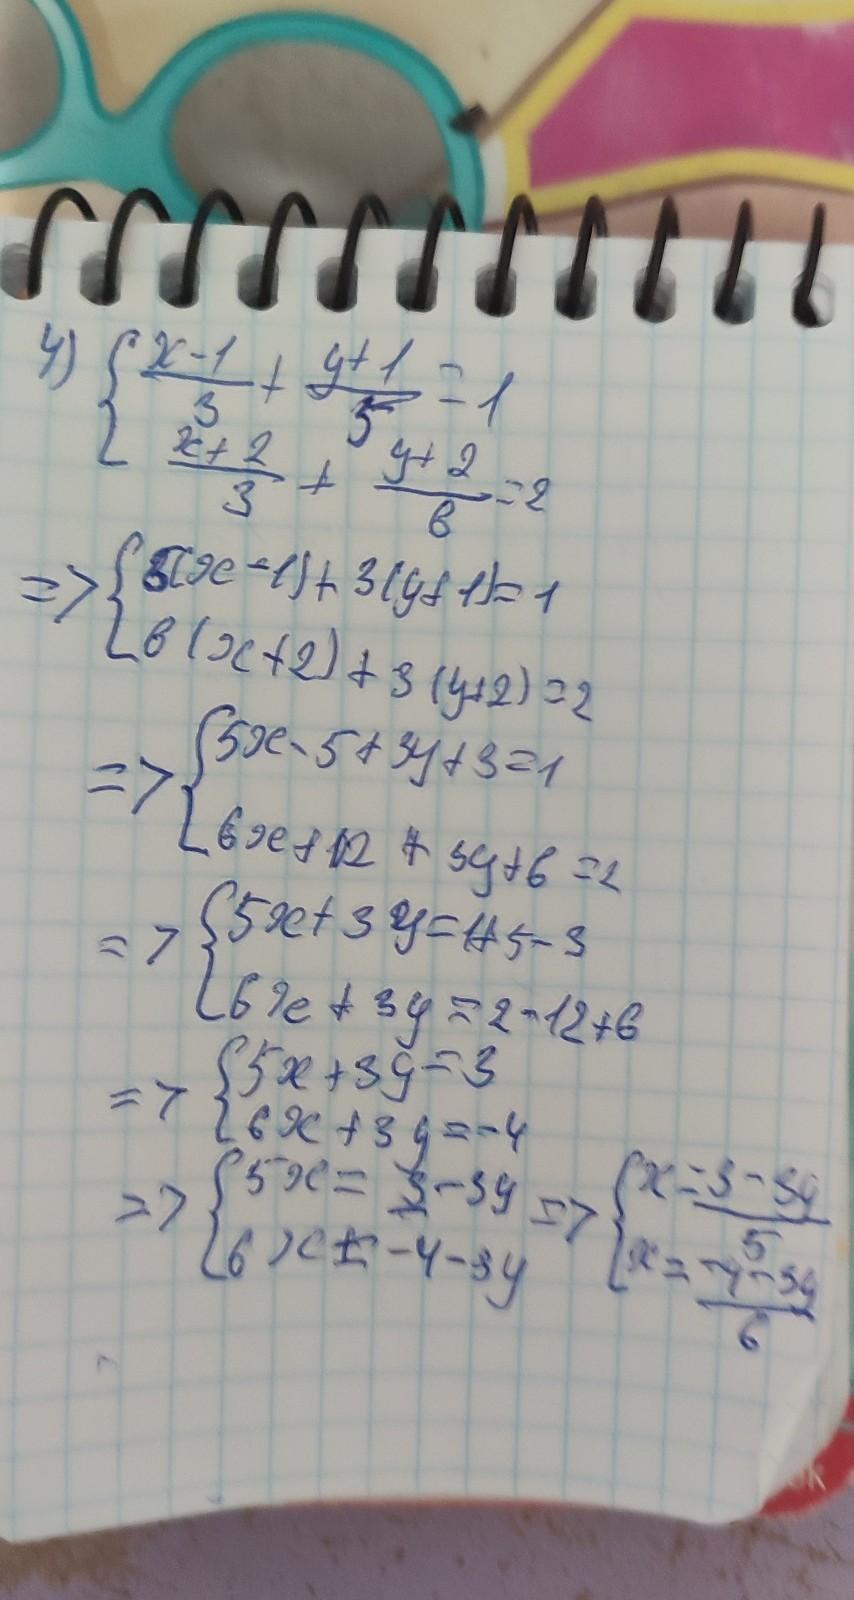 4) { (x-1)/3 + (y+1)/5 = 1
(x+2)/3 + (y+2)/6 = 2
=> { 5(x-1)+3(y+1)=1
6(x+2)+3(y+2)=2
=> { 5x-5+3y+3=1
6x+12+3y+6=2
=> { 5x+3y=1+5-3
6x+3y=2-12+6
=> { 5x+3y=3
6x+3y=-4
=> { 5x=3-3y => { x=(3-3y)/5
6x=-4-3y x=(-4-3y)/6